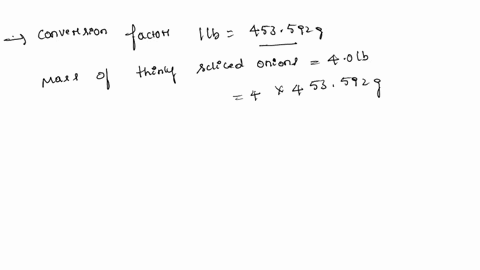 → Conversion factor 1lb = 453.592g
Mass of thinly scliced onions = 4.0lb
= 4 × 453.592g